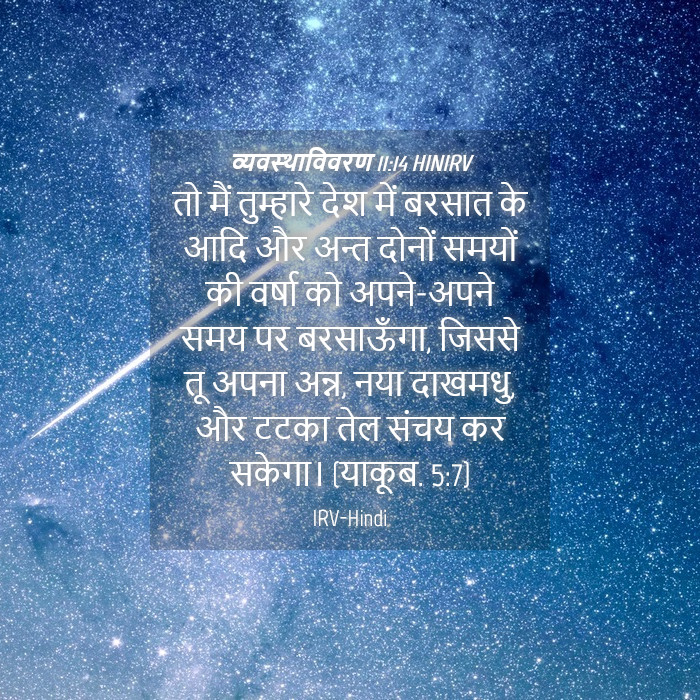 व्यवस्थाविवरण 11:14 HINIRV
तो मैं तुम्हारे देश में बरसात के
आदि और अन्त दोनों समयों
की वर्षा को अपने-अपने
समय पर बरसाऊँगा, जिससे
तू अपना अन्न, नया दाखमधु,
और टटका तेल संचय कर
सकेगा। (याकूब. 5:7)
IRV-Hindi